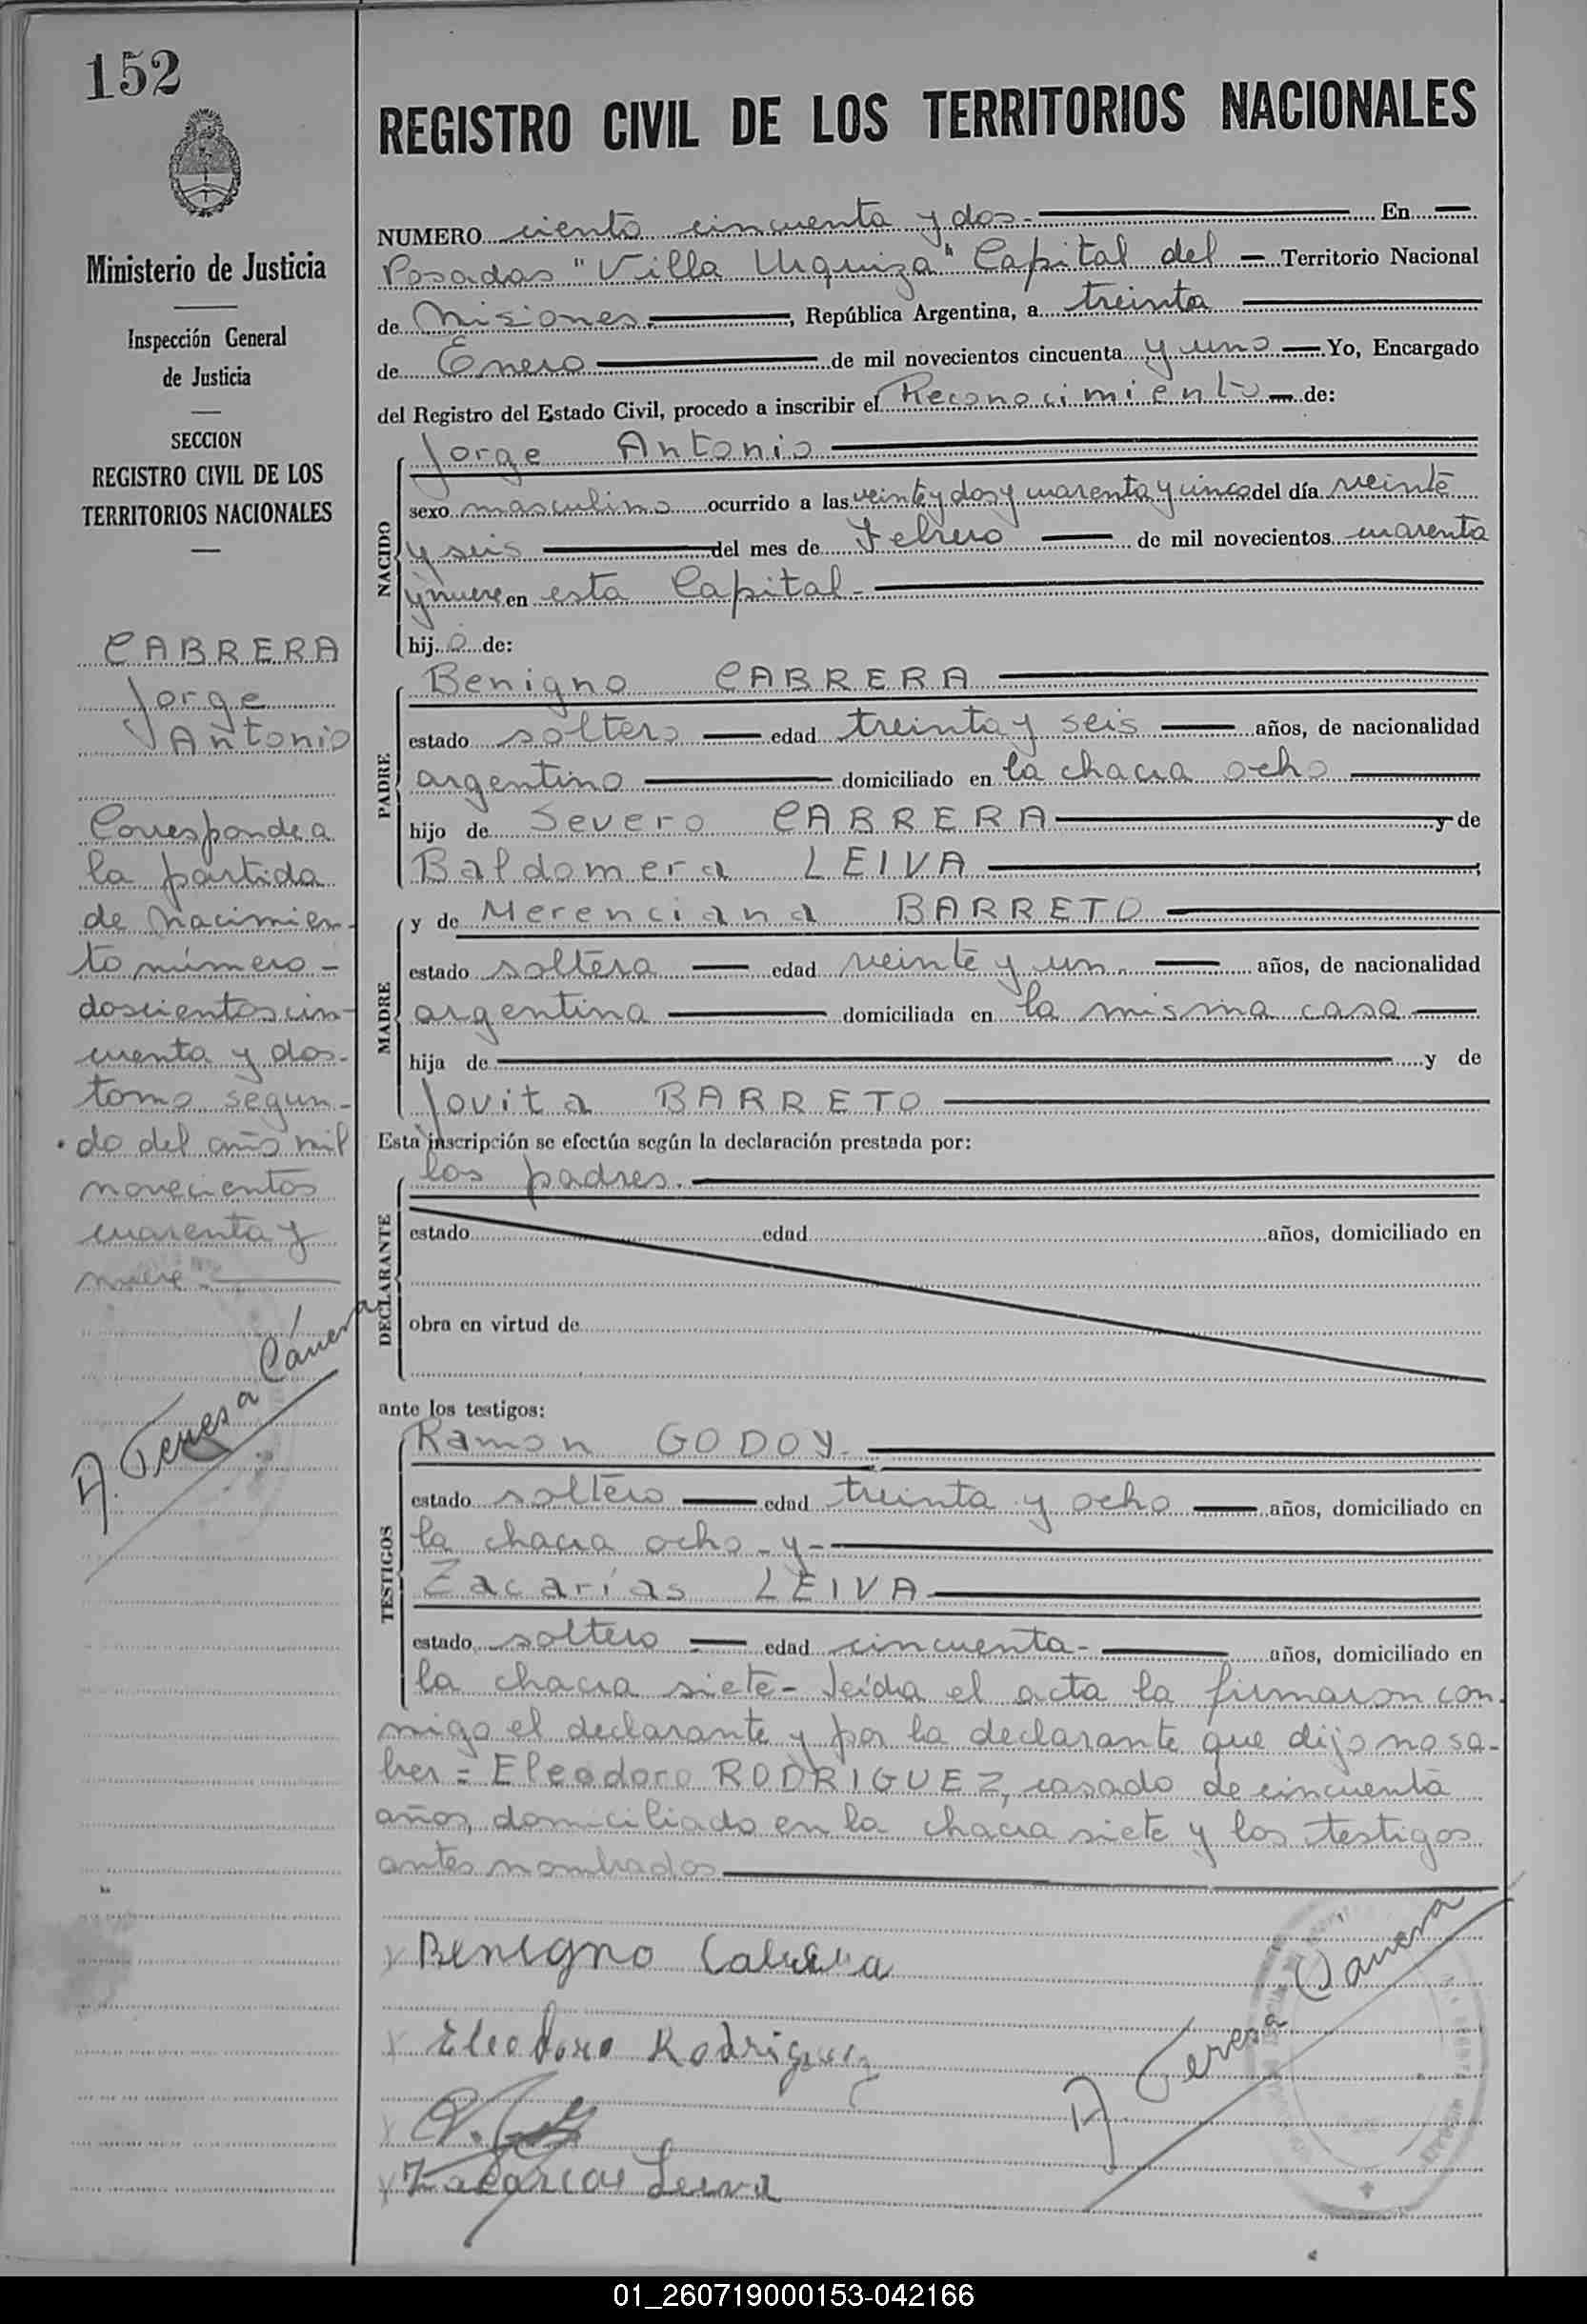 152
Ministerio de Justicia
Inspección General
de Justicia
SECCION
REGISTRO CIVIL DE LOS
TERRITORIOS NACIONALES
CABRERA
Jorge
Antonio
Corresponde a
la partida
de nacimien-
to número-
doscientos cin-
cuenta y dos-
tomo segun-
do del año mil
novecientos
cuarenta y
nueve.-
A. Teresa
REGISTRO CIVIL DE LOS TERRITORIOS NACIONALES
NUMERO ciento cincuenta y dos.- En
Posadas "Villa Urquiza" Capital del Territorio Nacional
de Misiones.-, República Argentina, a treinta
de Enero de mil novecientos cincuenta y uno Yo, Encargado
del Registro del Estado Civil, procedo a inscribir el Reconocimiento de:
NACIDO
Jorge Antonio
sexo masculino ocurrido a las veinte y dos y cuarenta y cinco del día veinte
y seis del mes de Febrero de mil novecientos cuarenta
y nueve en esta Capital-
hijo de:
PADRE
Benigno CABRERA
estado soltero edad treinta y seis años, de nacionalidad
argentino domiciliado en la chacra ocho
hijo de Severo CABRERA y de
Baldomera LEIVA ;
MADRE
y de Merenciana BARRETO
estado soltera edad veinte y un. años, de nacionalidad
argentina domiciliada en la misma casa
hija de y de
Jovita BARRETO
Esta inscripción se efectúa según la declaración prestada por:
DECLARANTE
los padres.
estado edad años, domiciliado en
obra en virtud de
ante los testigos:
TESTIGOS
Ramon GODOY.
estado soltero edad treinta y ocho años, domiciliado en
la chacra ocho - y -
Zacarías LEIVA
estado soltero edad cincuenta- años, domiciliado en
la chacra siete- Leída el acta la firmaron con-
migo el declarante y por la declarante que dijo no sa-
ber = Eleodoro RODRIGUEZ, casado de cincuenta
años, domiciliado en la chacra siete y los testigos
antes nombrados
Benigno Cabrera
Eleodoro Rodriguez
Zacarias Leiva
A Teresa
01_260719000153-042166